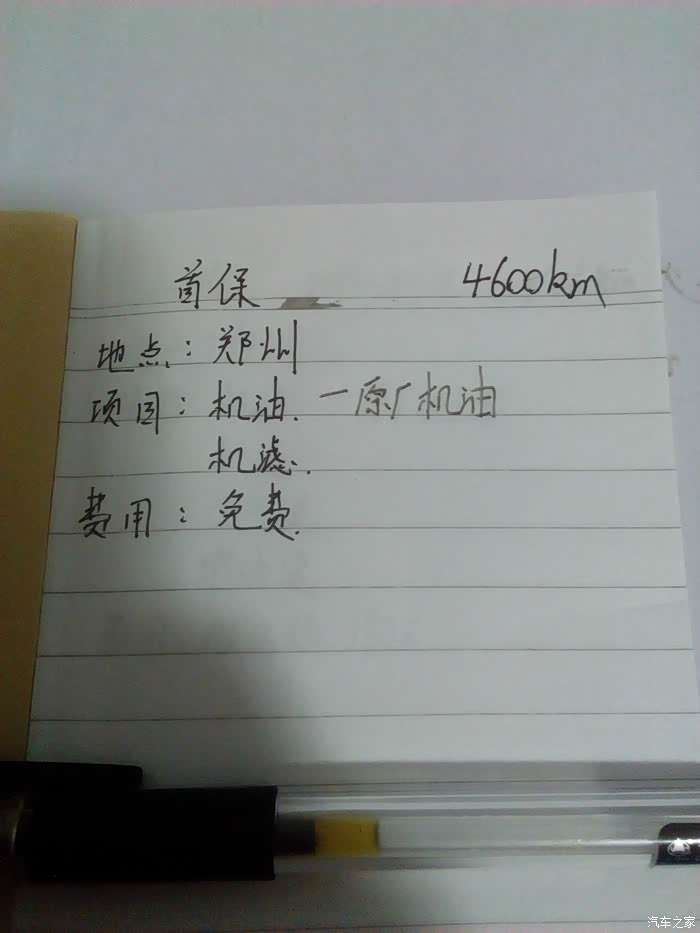 首保 4600km
地点：郑州
项目：机油. 一原厂机油
机滤.
费用：免费.
汽车之家